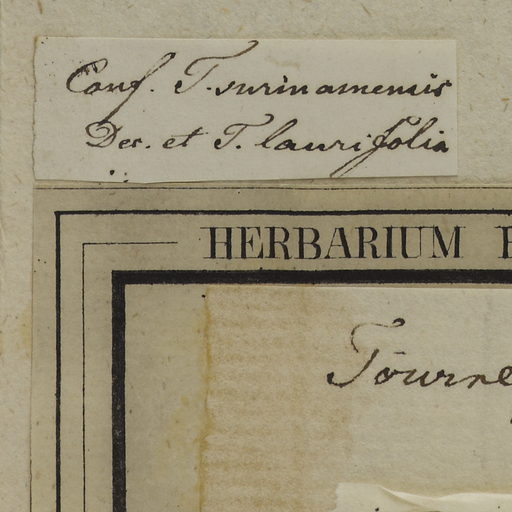 Conf. T. surinamensis
Dec. et T. laurifolia
HERBARIUM
Tourne